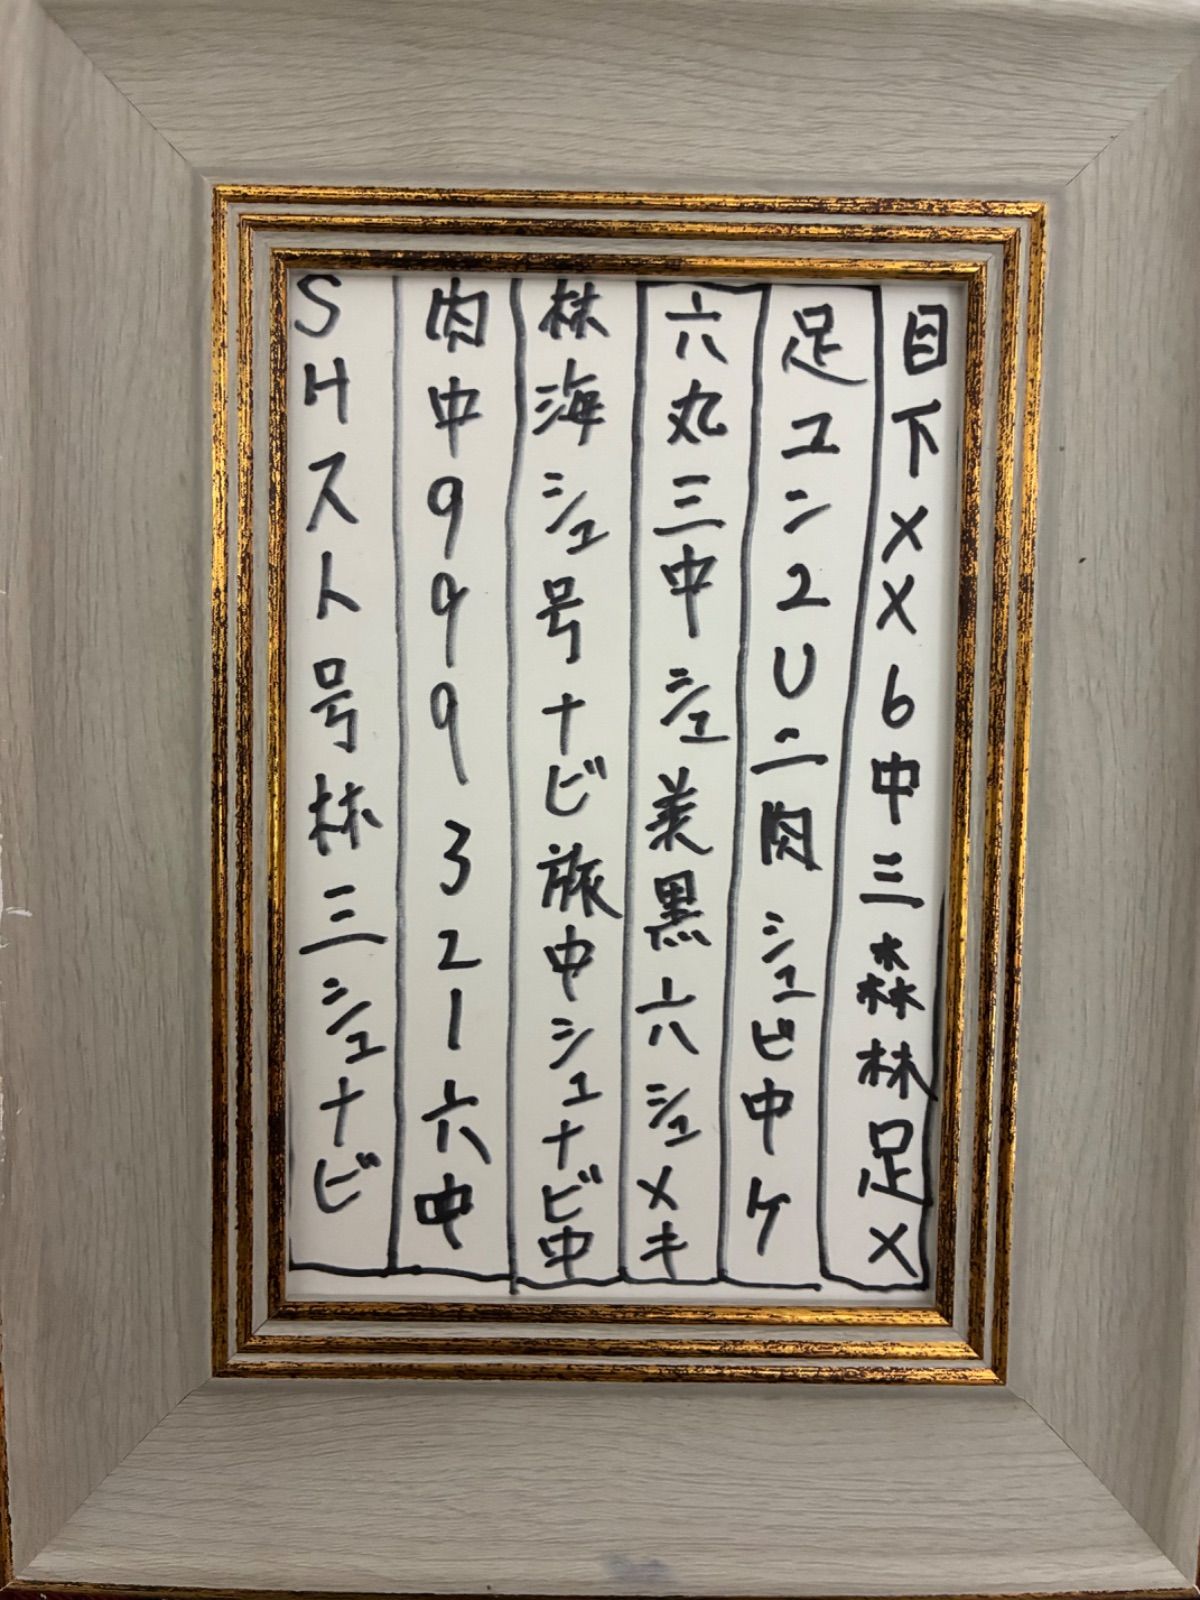 目下××6中三森林足×
足ユン2U二肉シュビ中ケ
六丸三中シュ美黒六シュメキ
林海シュ号ナビ旅中シュナビ中
肉中999321六中
SHスト号林三シュナビ